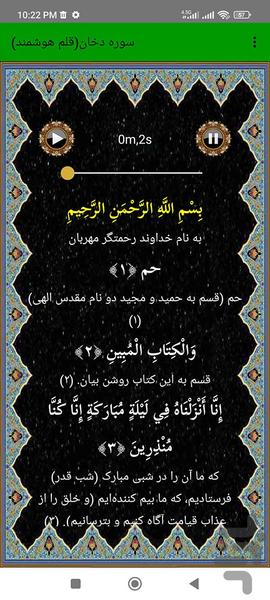 10:22 PM
سوره دخان(قلم هوشمند)
0m,2s
بِسْمِ اللَّهِ الرَّحْمَنِ الرَّحِيمِ
به نام خداوند رحمتگر مهربان
حم ﴿۱﴾
حم (قسم به حمید و مجید دو نام مقدس الهی)
(۱)
وَالْكِتَابِ الْمُبِينِ ﴿۲﴾
قسم به این کتاب روشن بیان. (۲)
إِنَّا أَنْزَلْنَاهُ فِي لَيْلَةٍ مُبَارَكَةٍ إِنَّا كُنَّا
مُنْذِرِينَ ﴿۳﴾
که ما آن را در شبی مبارک (شب قدر)
فرستادیم، که ما بیم کننده‌ایم (و خلق را از
عذاب قیامت آگاه کنیم و بترسانیم). (۳)